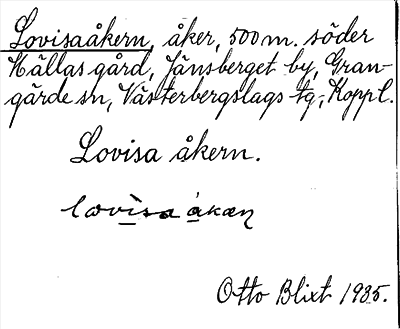 Lovisaåkern, åker, 500 m. söder
Källas gård, Jänsberget by, Gran-
gärde sn, Västerbergslags tg., Koppl.
Lovisa åkern.
Otto Blixt 1935.